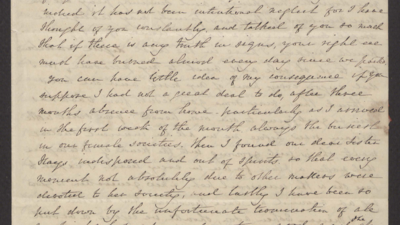 it has not been intentional neglect for I have
thought of you constantly, and talked of you so much
that if there is any truth in signs, your right ear
must have burned almost every day since we parted
You can have little idea of my consequence if you
suppose I had not a great deal to do after three
months absence from home, particularly as I arrived
in the first week of the month always the busiest
in our female societies, then I found our dear Sister
Hays indisposed and out of spirits, so that every
moment not absolutely due to other matters were
devoted to her society, and lastly I have been so
put down by the unfortunate termination of all